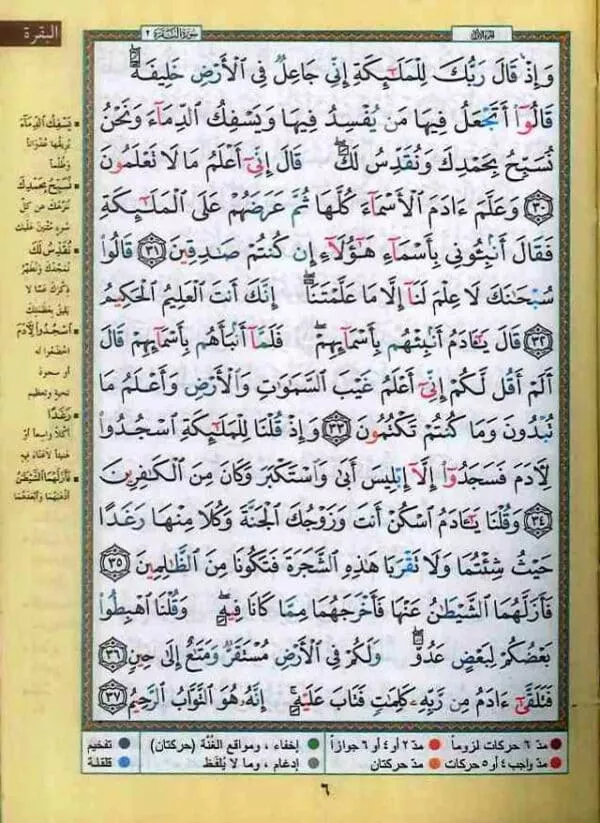 البقرة
سورة البقرة ٢
الجزء الأول
وَإِذْ قَالَ رَبُّكَ لِلْمَلَـٰٓئِكَةِ إِنِّى جَاعِلٌ فِى الْأَرْضِ خَلِيفَةً ۖ
قَالُوٓا۟ أَتَجْعَلُ فِيهَا مَن يُفْسِدُ فِيهَا وَيَسْفِكُ الدِّمَآءَ وَنَحْنُ
نُسَبِّحُ بِحَمْدِكَ وَنُقَدِّسُ لَكَ ۖ قَالَ إِنِّىٓ أَعْلَمُ مَا لَا تَعْلَمُونَ
٣٠ وَعَلَّمَ ءَادَمَ الْأَسْمَآءَ كُلَّهَا ثُمَّ عَرَضَهُمْ عَلَى الْمَلَـٰٓئِكَةِ
فَقَالَ أَنۢبِـُٔونِى بِأَسْمَآءِ هَـٰٓؤُلَآءِ إِن كُنتُمْ صَـٰدِقِينَ ٣١ قَالُوا۟
سُبْحَـٰنَكَ لَا عِلْمَ لَنَآ إِلَّا مَا عَلَّمْتَنَآ ۖ إِنَّكَ أَنتَ الْعَلِيمُ الْحَكِيمُ
٣٢ قَالَ يَـٰٓـَٔادَمُ أَنۢبِئْهُم بِأَسْمَآئِهِمْ ۖ فَلَمَّآ أَنۢبَأَهُم بِأَسْمَآئِهِمْ قَالَ
أَلَمْ أَقُل لَّكُمْ إِنِّىٓ أَعْلَمُ غَيْبَ السَّمَـٰوَٰتِ وَالْأَرْضِ وَأَعْلَمُ مَا
تُبْدُونَ وَمَا كُنتُمْ تَكْتُمُونَ ٣٣ وَإِذْ قُلْنَا لِلْمَلَـٰٓئِكَةِ اسْجُدُوا۟
لِـَٔادَمَ فَسَجَدُوٓا۟ إِلَّآ إِبْلِيسَ أَبَىٰ وَاسْتَكْبَرَ وَكَانَ مِنَ الْكَـٰفِرِينَ
٣٤ وَقُلْنَا يَـٰٓـَٔادَمُ اسْكُنْ أَنتَ وَزَوْجُكَ الْجَنَّةَ وَكُلَا مِنْهَا رَغَدًا
حَيْثُ شِئْتُمَا وَلَا تَقْرَبَا هَـٰذِهِ الشَّجَرَةَ فَتَكُونَا مِنَ الظَّـٰلِمِينَ ٣٥
فَأَزَلَّهُمَا الشَّيْطَـٰنُ عَنْهَا فَأَخْرَجَهُمَا مِمَّا كَانَا فِيهِ ۖ وَقُلْنَا اهْبِطُوا۟
بَعْضُكُمْ لِبَعْضٍ عَدُوٌّ ۖ وَلَكُمْ فِى الْأَرْضِ مُسْتَقَرٌّ وَمَتَـٰعٌ إِلَىٰ حِينٍ ٣٦
فَتَلَقَّىٰٓ ءَادَمُ مِن رَّبِّهِۦ كَلِمَـٰتٍ فَتَابَ عَلَيْهِ ۚ إِنَّهُۥ هُوَ التَّوَّابُ الرَّحِيمُ ٣٧
يَسْفِكُ الدِّمَآءَ
يُرِيقُهَا عُدْوَانًا
وَظُلْمًا
نُسَبِّحُ بِحَمْدِكَ
نُنَزِّهُكَ عَن كُلِّ
سُوءٍ مُثْنِينَ عَلَيْكَ
نُقَدِّسُ لَكَ
نُمَجِّدُكَ وَنُطَهِّرُ
ذِكْرَكَ عَمَّا لَا
يَلِيقُ بِعَظَمَتِكَ
اسْجُدُوا۟ لِـَٔادَمَ
اخْضَعُوا له
أو سجود
تحية وتعظيم
رَغَدًا
أكلاً واسعاً أو
هنيئاً لا عناء فيه
فَأَزَلَّهُمَا الشَّيْطَـٰنُ
أذهبهما وأبعدهما
مدّ ٦ حركات لزوماً
مدّ ٢ أو ٤ أو ٦ جوازاً
إخفاء، ومواقع الغُنَّة (حركتان)
تفخيم
مدّ واجب ٤ أو ٥ حركات
مدّ حركتان
إدغام، وما لا يُلفَظ
قلقلة
٦